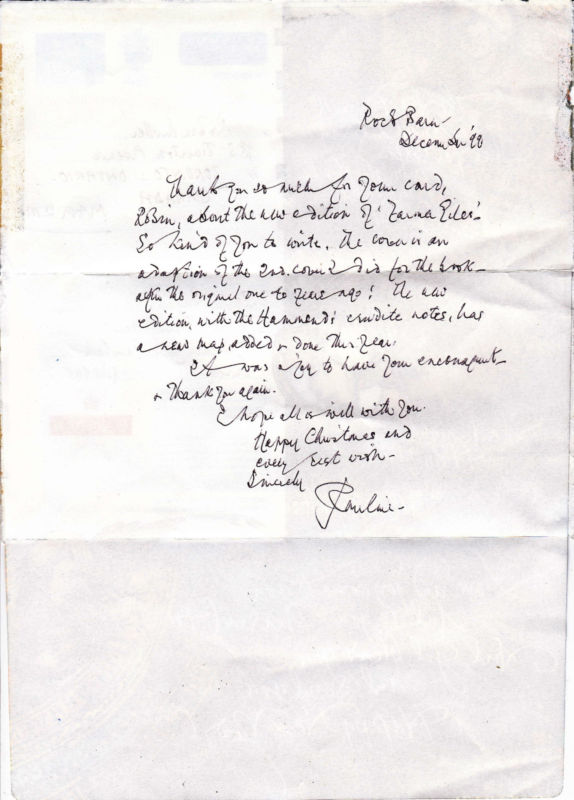 Rock Barn -
December '99
Thank you so much for your card,
Robin, about the new edition of 'Farmer Giles' -
So kind of you to write. The cover is an
adaption of the 2nd. cover I did for the book -
after the original one 50 years ago! The new
edition, with the Hammond's erudite notes, has
a new map, added & done this year.
It was a joy to have your encouragement -
& thank you again.
I hope all is well with you.
Happy Christmas and
every best wish -
Sincerely
Pauline -